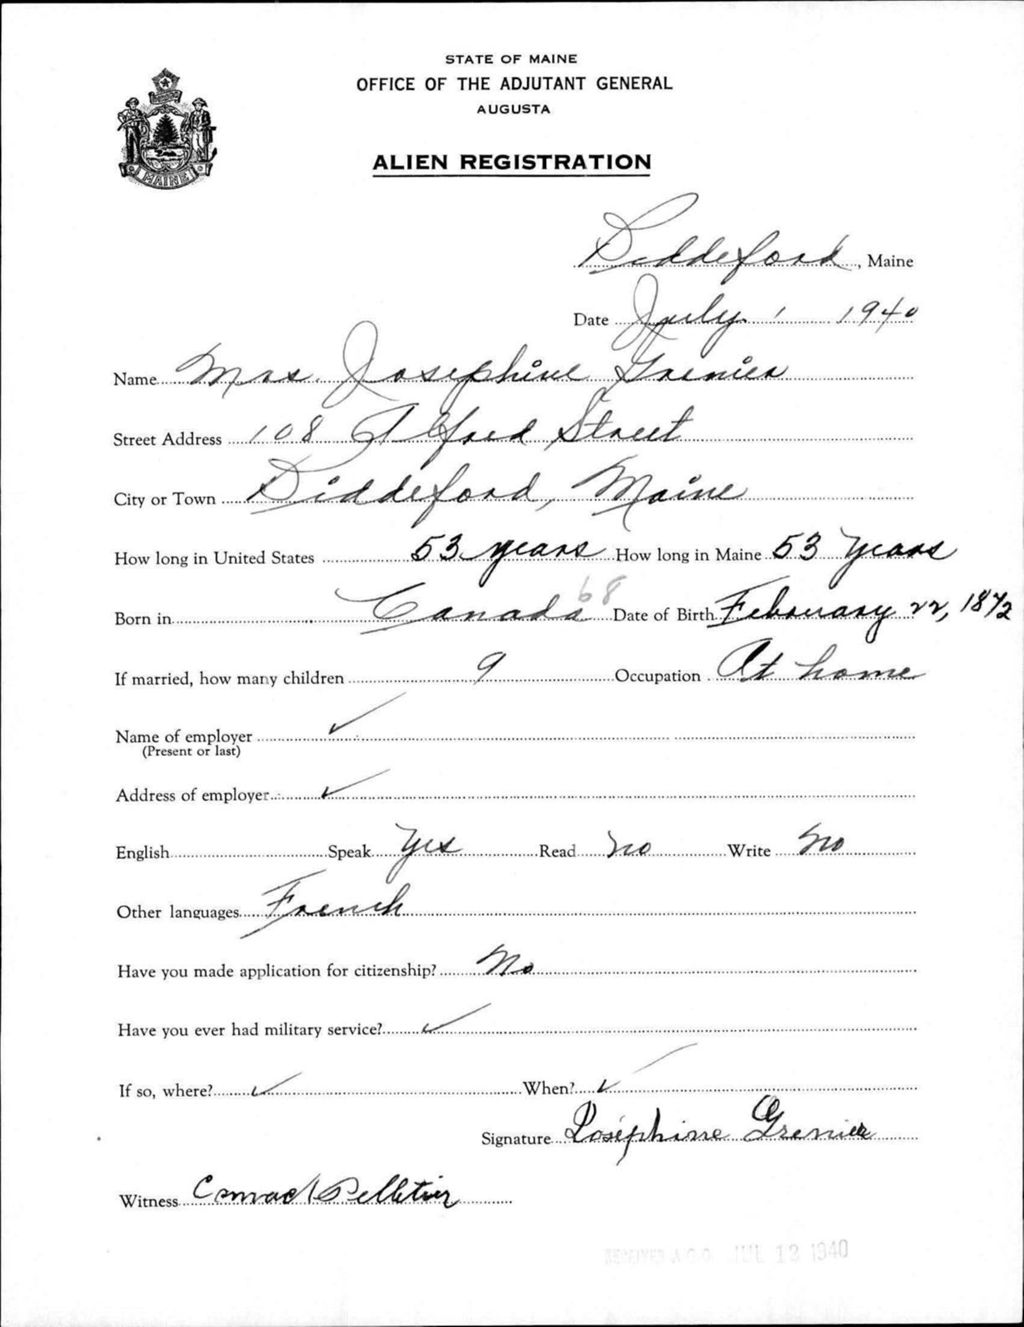 STATE OF MAINE
OFFICE OF THE ADJUTANT GENERAL
AUGUSTA
ALIEN REGISTRATION
MAINE
Biddeford, Maine
Date July 1 1940
Name Mrs. Josephine Grenier
Street Address 108 Alfred Street
City or Town Biddeford, Maine
How long in United States 53 years How long in Maine 53 years
68
Born in Canada Date of Birth February 22, 1872
If married, how many children 9 Occupation At home
Name of employer
(Present or last)
Address of employer
English Speak Yes Read No Write No
Other languages French
Have you made application for citizenship? No
Have you ever had military service?
If so, where? When?
Signature Joséphine Grenier
Witness Conrad Pelletier
RECEIVED A.G.O. JUL 12 1940